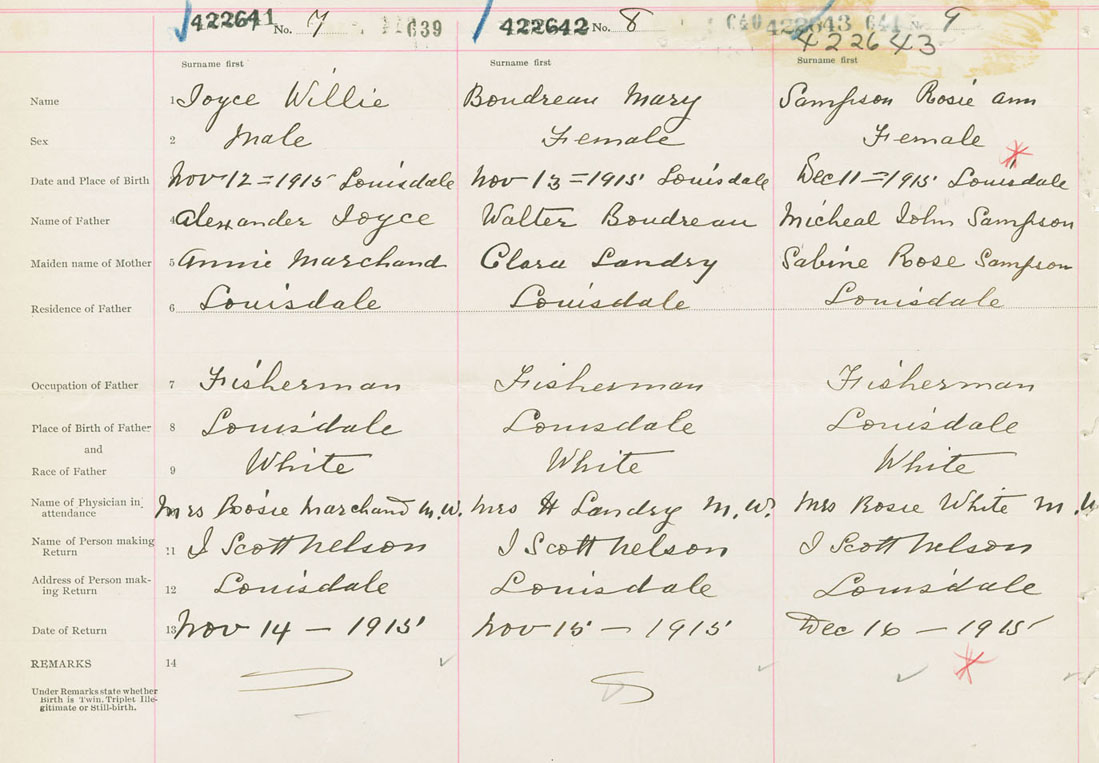 422641 No. 7 639 422642 No. 8 640 422643 641 9
422643
Surname first Surname first Surname first
Name 1 Joyce Willie Boudreau Mary Sampson Rosie ann
Sex 2 Male Female Female
Date and Place of Birth Nov 12 = 1915 Louisdale Nov 13 = 1915 Louisdale Dec 11 = 1915 Louisdale
Name of Father 4 Alexander Joyce Walter Boudreau Micheal John Sampson
Maiden name of Mother 5 Annie Marchand Clara Landry Sabine Rose Sampson
Residence of Father 6 Louisdale Louisdale Louisdale
Occupation of Father 7 Fisherman Fisherman Fisherman
Place of Birth of Father 8 Louisdale Louisdale Louisdale
and
Race of Father 9 White White White
Name of Physician in attendance Mrs Rosie Marchand M.W. Mrs H Landry M.W. Mrs Rosie White M.W
Name of Person making Return 11 J Scott Nelson J Scott Nelson J Scott Nelson
Address of Person mak-ing Return 12 Louisdale Louisdale Louisdale
Date of Return 13 Nov 14 - 1915 Nov 15 - 1915 Dec 16 - 1915
REMARKS 14
Under Remarks state whether
Birth is Twin, Triplet Ille-
gitimate or Still-birth.